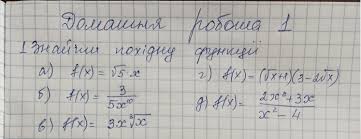 Домашня робота 1
1. Знайти похідну функції
а) f(x) = √5·x
б) f(x) = 3/5x¹⁰
в) f(x) = 3x ³√x
г) f(x) = (√x+1)(3-2√x)
д) f(x) = 2x²+3x/x²-4